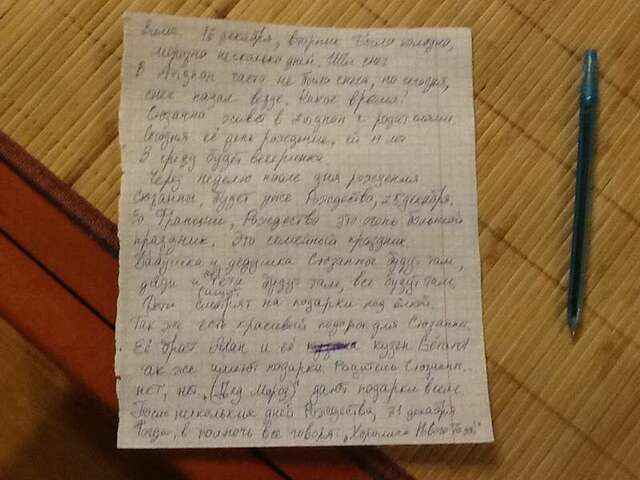 Зима. 16 декабря, вторник. Было холодно,
морозно несколько дней. Шёл снег.
В часто не было снега, но сегодня,
снег падал везде. Какое время!
Сюзанна живёт в с родителями.
Сегодня её день рождения, ей 11 лет
В среду будет вечеринка
Через неделю после дня рождения
Сюзанны, будет уже Рождество, 25 декабря.
Во Франции, Рождество это очень большой
праздник. Это семейный праздник.
Бабушка и дедушка Сюзанны будут там,
дяди и тёти будут там, все будут там,
Дети смотрят на подарки под ёлкой.
Так же есть красивый подарок для Сюзанны.
Её брат Алан и её кузен
так же имеют подарки. Родители Сюзанны..
нет, нет, "(Дед Мороз)" дают подарки всем.
После нескольких дней Рождества, 31 декабря
Тогда, в полночь все говорят: „Хорошего Нового Года!"